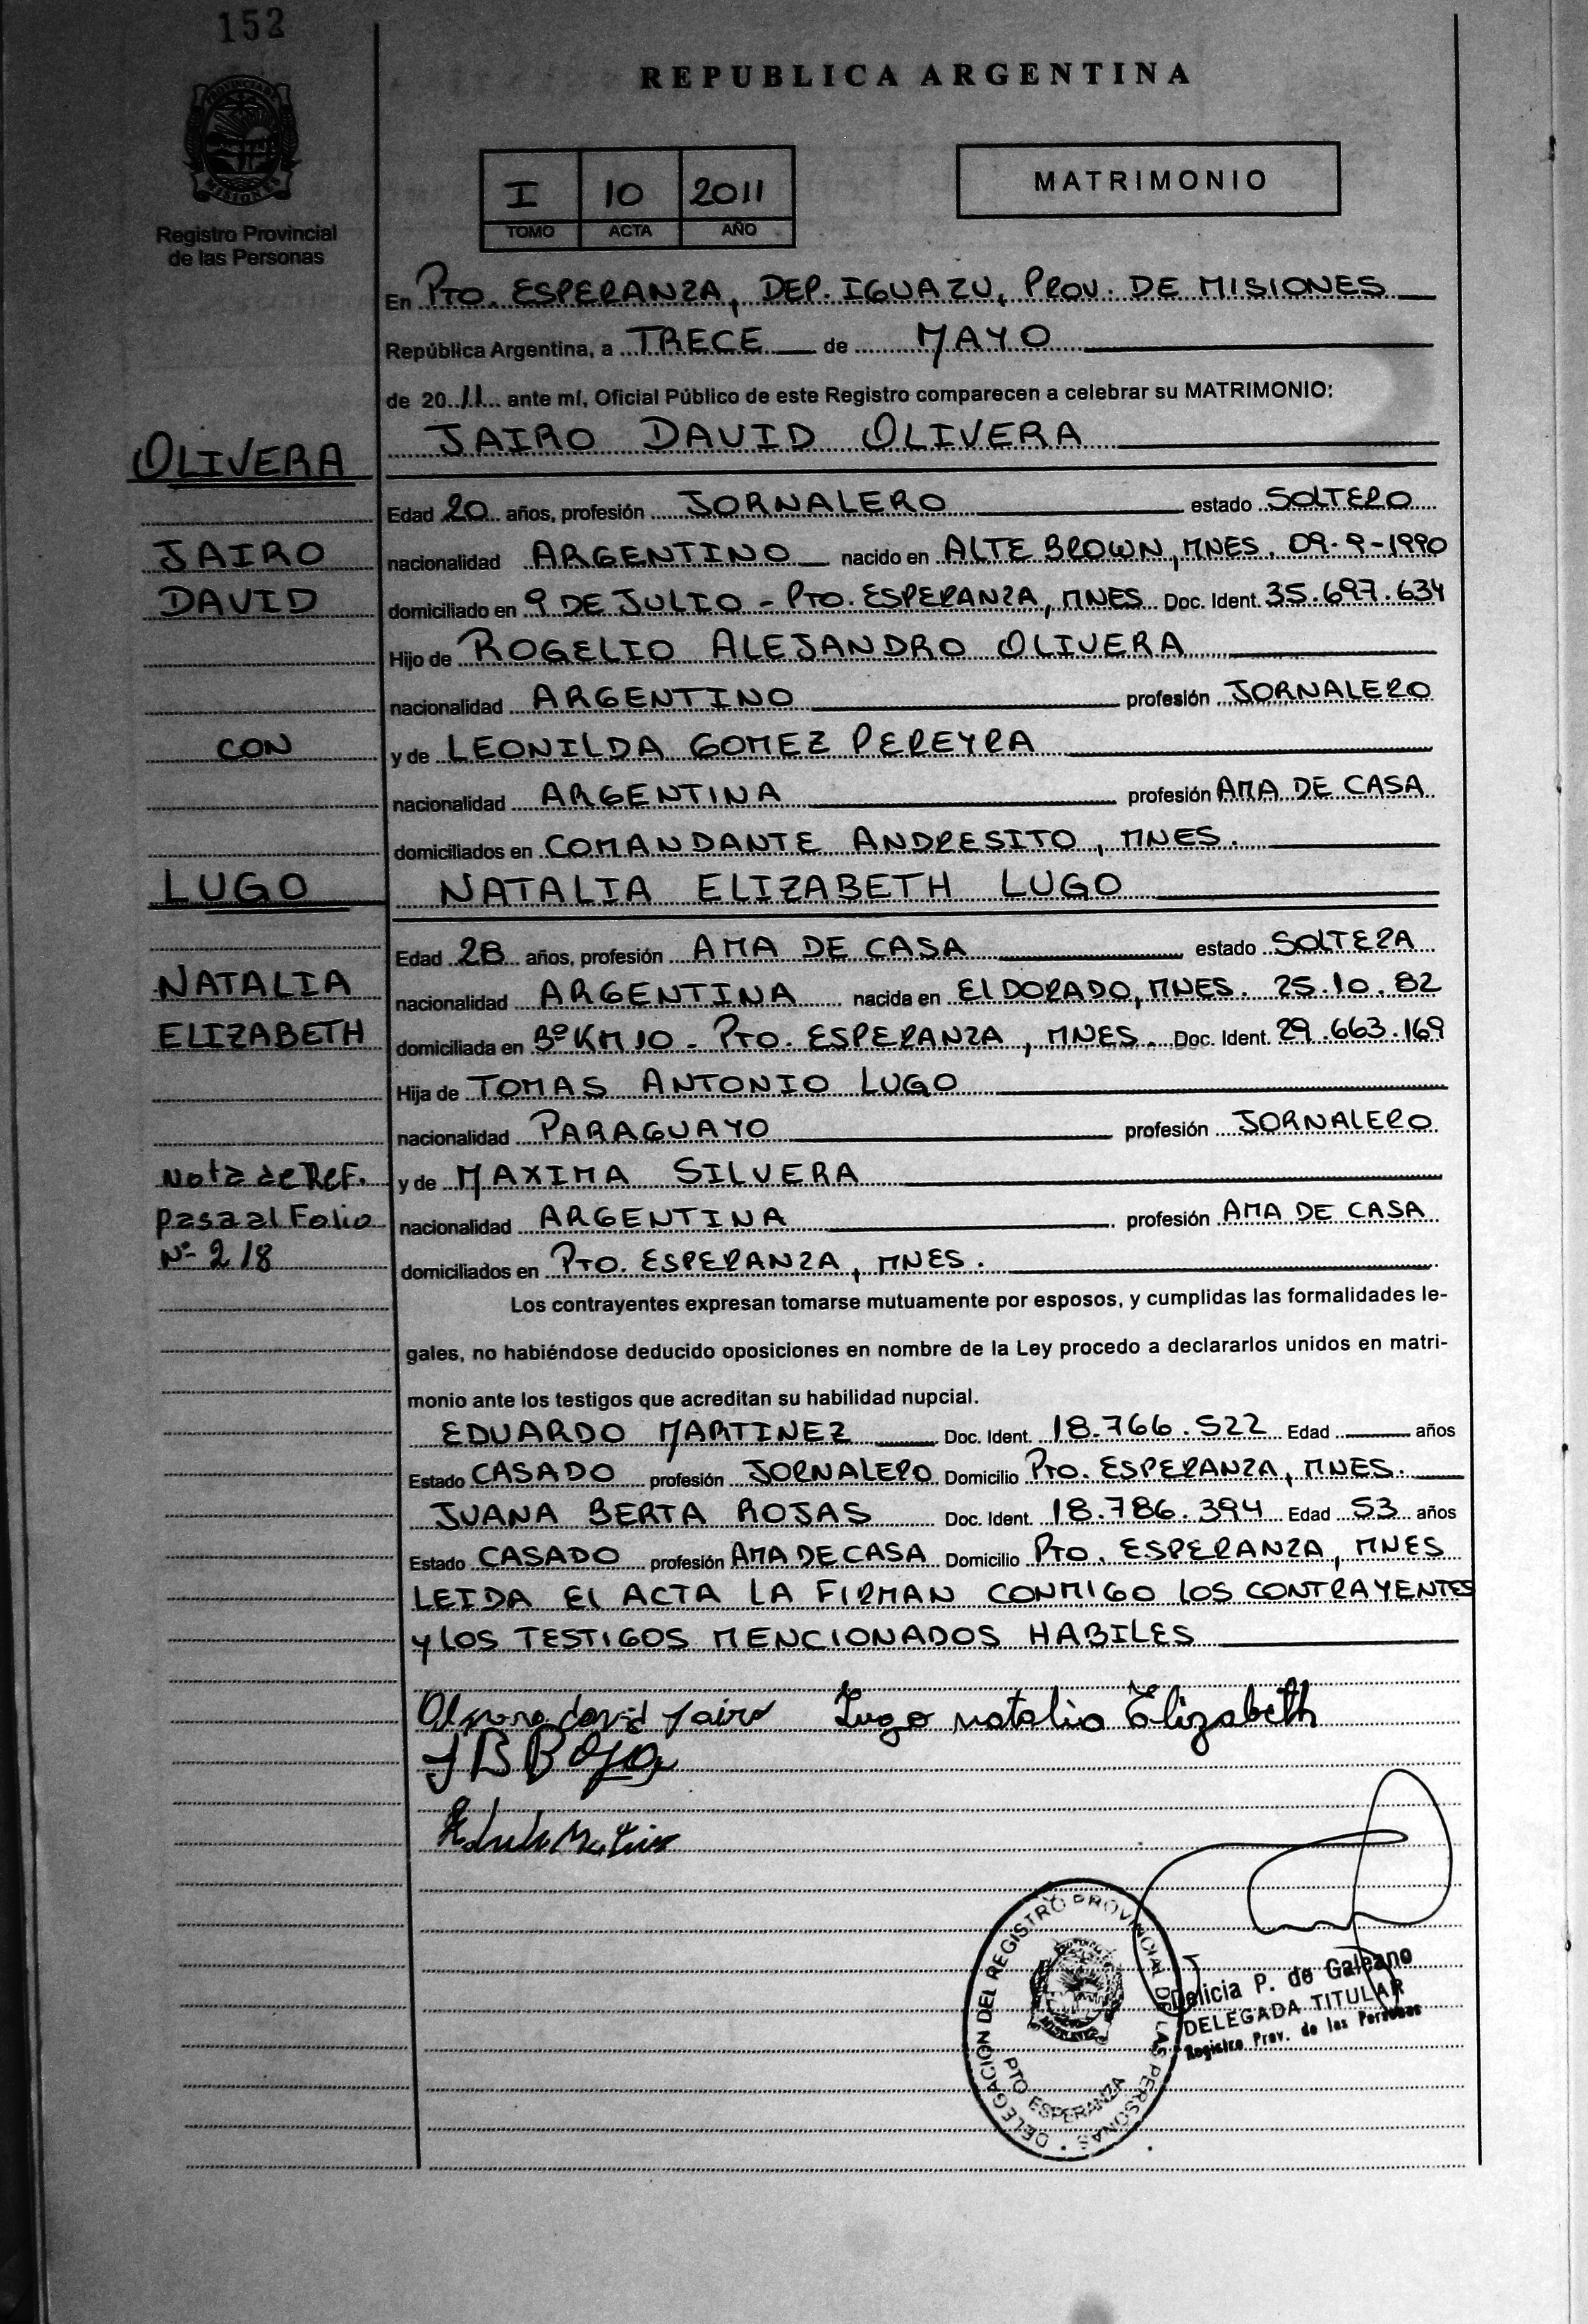 152
REPUBLICA ARGENTINA
PROVINCIA DE MISIONES
Registro Provincial
de las Personas
I 10 2011
TOMO ACTA AÑO
MATRIMONIO
En PTO. ESPERANZA, DEP. IGUAZU, PROV. DE MISIONES
República Argentina, a TRECE de MAYO
de 2011 ante mí, Oficial Público de este Registro comparecen a celebrar su MATRIMONIO:
OLIVERA JAIRO DAVID OLIVERA
Edad 20 años, profesión JORNALERO estado SOLTERO
JAIRO nacionalidad ARGENTINO nacido en ALTE BROWN, MNES. 09-9-1990
DAVID domiciliado en 9 DE JULIO - PTO. ESPERANZA, MNES Doc. Ident. 35.697.634
Hijo de ROGELIO ALEJANDRO OLIVERA
nacionalidad ARGENTINO profesión JORNALERO
CON y de LEONILDA GOMEZ PEREYRA
nacionalidad ARGENTINA profesión AMA DE CASA
domiciliados en COMANDANTE ANDRESITO, MNES.
LUGO NATALIA ELIZABETH LUGO
Edad 28 años, profesión AMA DE CASA estado SOLTERA
NATALIA nacionalidad ARGENTINA nacida en ElDORADO, MNES. 25.10.82
ELIZABETH domiciliada en Bº KM 10 - PTO. ESPERANZA, MNES. Doc. Ident. 29.663.169
Hija de TOMAS ANTONIO LUGO
nacionalidad PARAGUAYO profesión JORNALERO
Nota de Ref. y de MAXIMA SILVERA
pasa al Folio nacionalidad ARGENTINA profesión AMA DE CASA
Nº 218 domiciliados en PTO. ESPERANZA, MNES.
Los contrayentes expresan tomarse mutuamente por esposos, y cumplidas las formalidades le-
gales, no habiéndose deducido oposiciones en nombre de la Ley procedo a declararlos unidos en matri-
monio ante los testigos que acreditan su habilidad nupcial.
EDUARDO MARTINEZ Doc. Ident. 18.766.522 Edad años
Estado CASADO profesión JORNALERO Domicilio PTO. ESPERANZA, MNES.
JUANA BERTA ROJAS Doc. Ident. 18.786.394 Edad 53 años
Estado CASADO profesión AMA DE CASA Domicilio PTO. ESPERANZA, MNES
LEIDA El ACTA LA FIRMAN CONMIGO LOS CONTRAYENTES
y LOS TESTIGOS MENCIONADOS HABILES
david Jairo Lugo natalia Elizabeth
DELEGACION DEL REGISTRO PROVINCIAL DE LAS PERSONAS
PTO ESPERANZA
Delicia P. de Galeano
DELEGADA TITULAR
Registro Prov. de las Personas